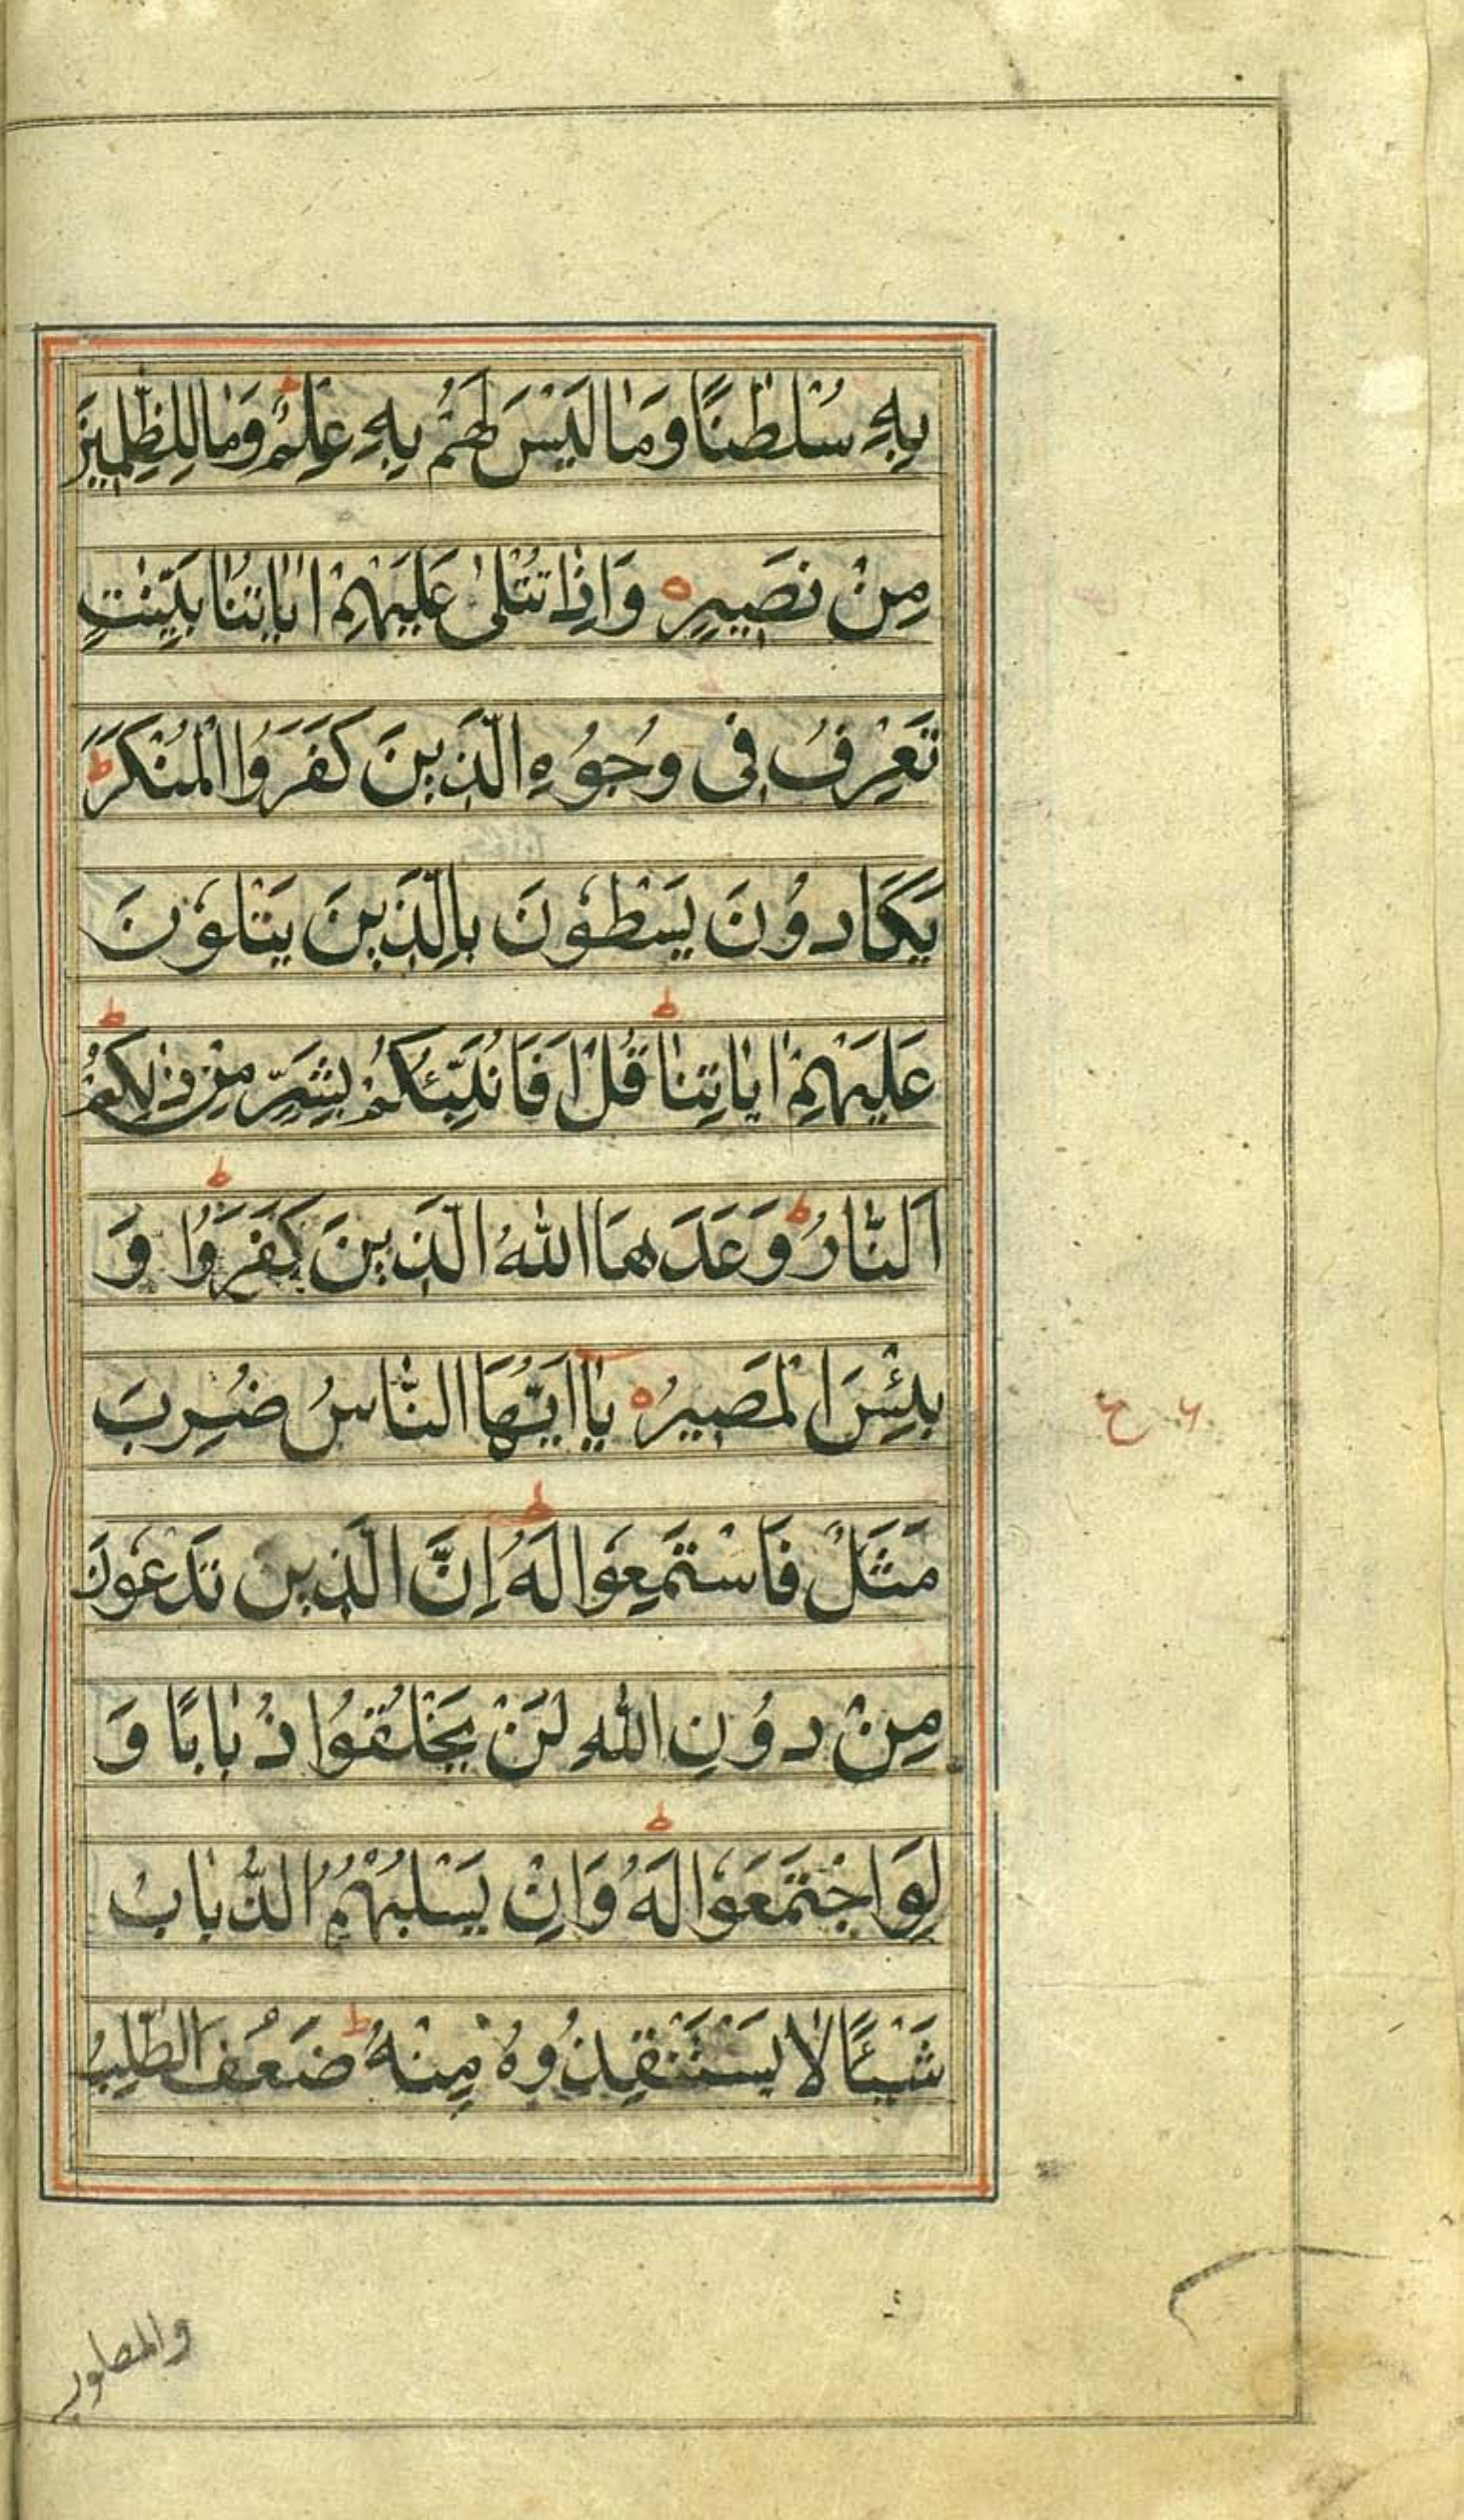 بِهٖ سُلْطٰنًا وَمَا لَيْسَ لَهُمْ بِهٖ عِلْمٌ ط وَمَا لِلظّٰلِمِيْنَ
مِنْ نَصِيْرٍ ه وَاِذَا تُتْلٰى عَلَيْهِمْ اٰيَاتُنَا بَيِّنٰتٍ
تَعْرِفُ فِى وُجُوْهِ الَّذِيْنَ كَفَرُوا الْمُنْكَرَ ط
يَكَادُوْنَ يَسْطُوْنَ بِالَّذِيْنَ يَتْلُوْنَ
عَلَيْهِمْ اٰيَاتِنَا ط قُلْ اَفَاُنَبِّئُكُمْ بِشَرٍّ مِنْ ذٰلِكُمْ ط
اَلنَّارُ ط وَعَدَهَا اللّٰهُ الَّذِيْنَ كَفَرُوْا ط وَ
بِئْسَ الْمَصِيْرُ ه يَا اَيُّهَا النَّاسُ ضُرِبَ
مَثَلٌ فَاسْتَمِعُوْا لَهُ ط اِنَّ الَّذِيْنَ تَدْعُوْنَ
مِنْ دُوْنِ اللّٰهِ لَنْ يَخْلُقُوْا ذُبَابًا وَ
لَوِ اجْتَمَعُوْا لَهُ ط وَاِنْ يَسْلُبْهُمُ الذُّبَابُ
شَيْئًا لَا يَسْتَنْقِذُوْهُ مِنْهُ ط ضَعُفَ الطَّالِبُ
والمطلوب